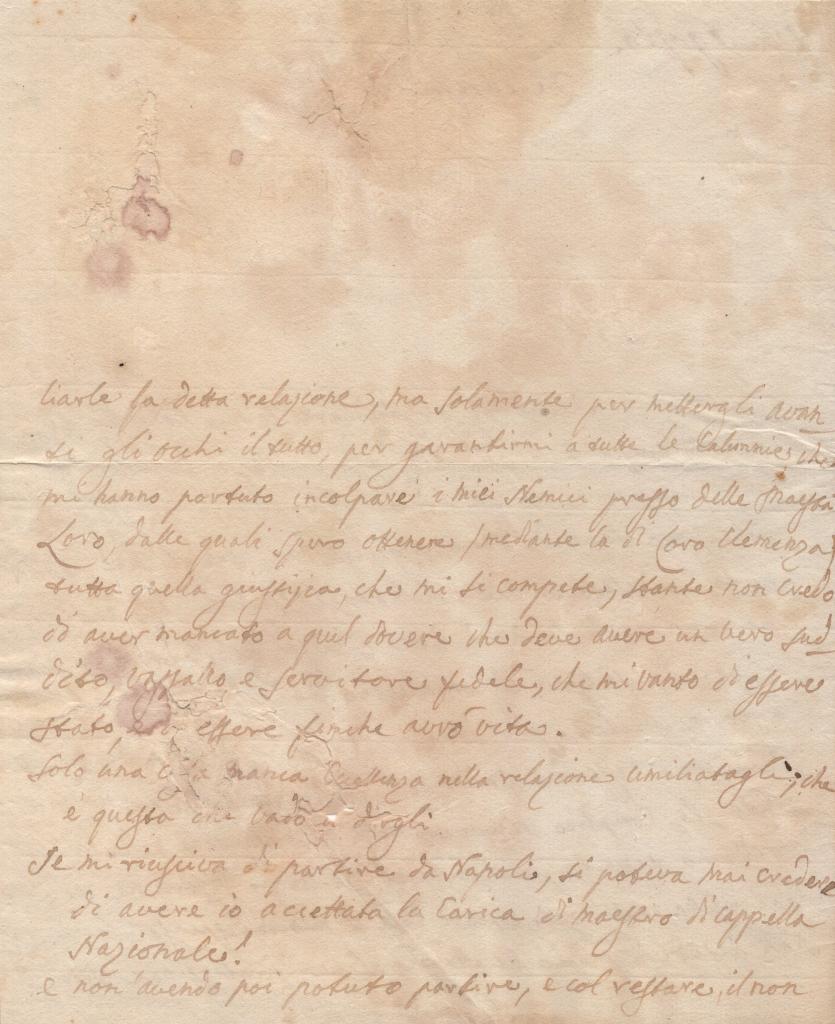 liarle la detta relazione, ma solamente per mettergli avan
ti gli occhi il tutto, per garantirmi a tutte le Calunnie, che
mi hanno portuto incolpare i miei Nemici presso delle Maestà
Loro, dalle quali spero ottenere (mediante la di Loro Clemenza)
tutta quella giustizia, che mi si compete, stante non credo
di aver mancato a quel dovere che deve avere un vero sud
dito, vassallo e servitore fedele, che mi vanto di essere
stato, e di essere finche avrò vita.
Solo una cosa manca Eccellenza nella relazione umiliatagli; che
è questa che vado a dirgli.
Se mi riusciva di partire da Napoli, si poteva mai credere
di avere io accettata la Carica di maestro di cappella
Nazionale!
e non avendo poi potuto partire, e col restare, il non